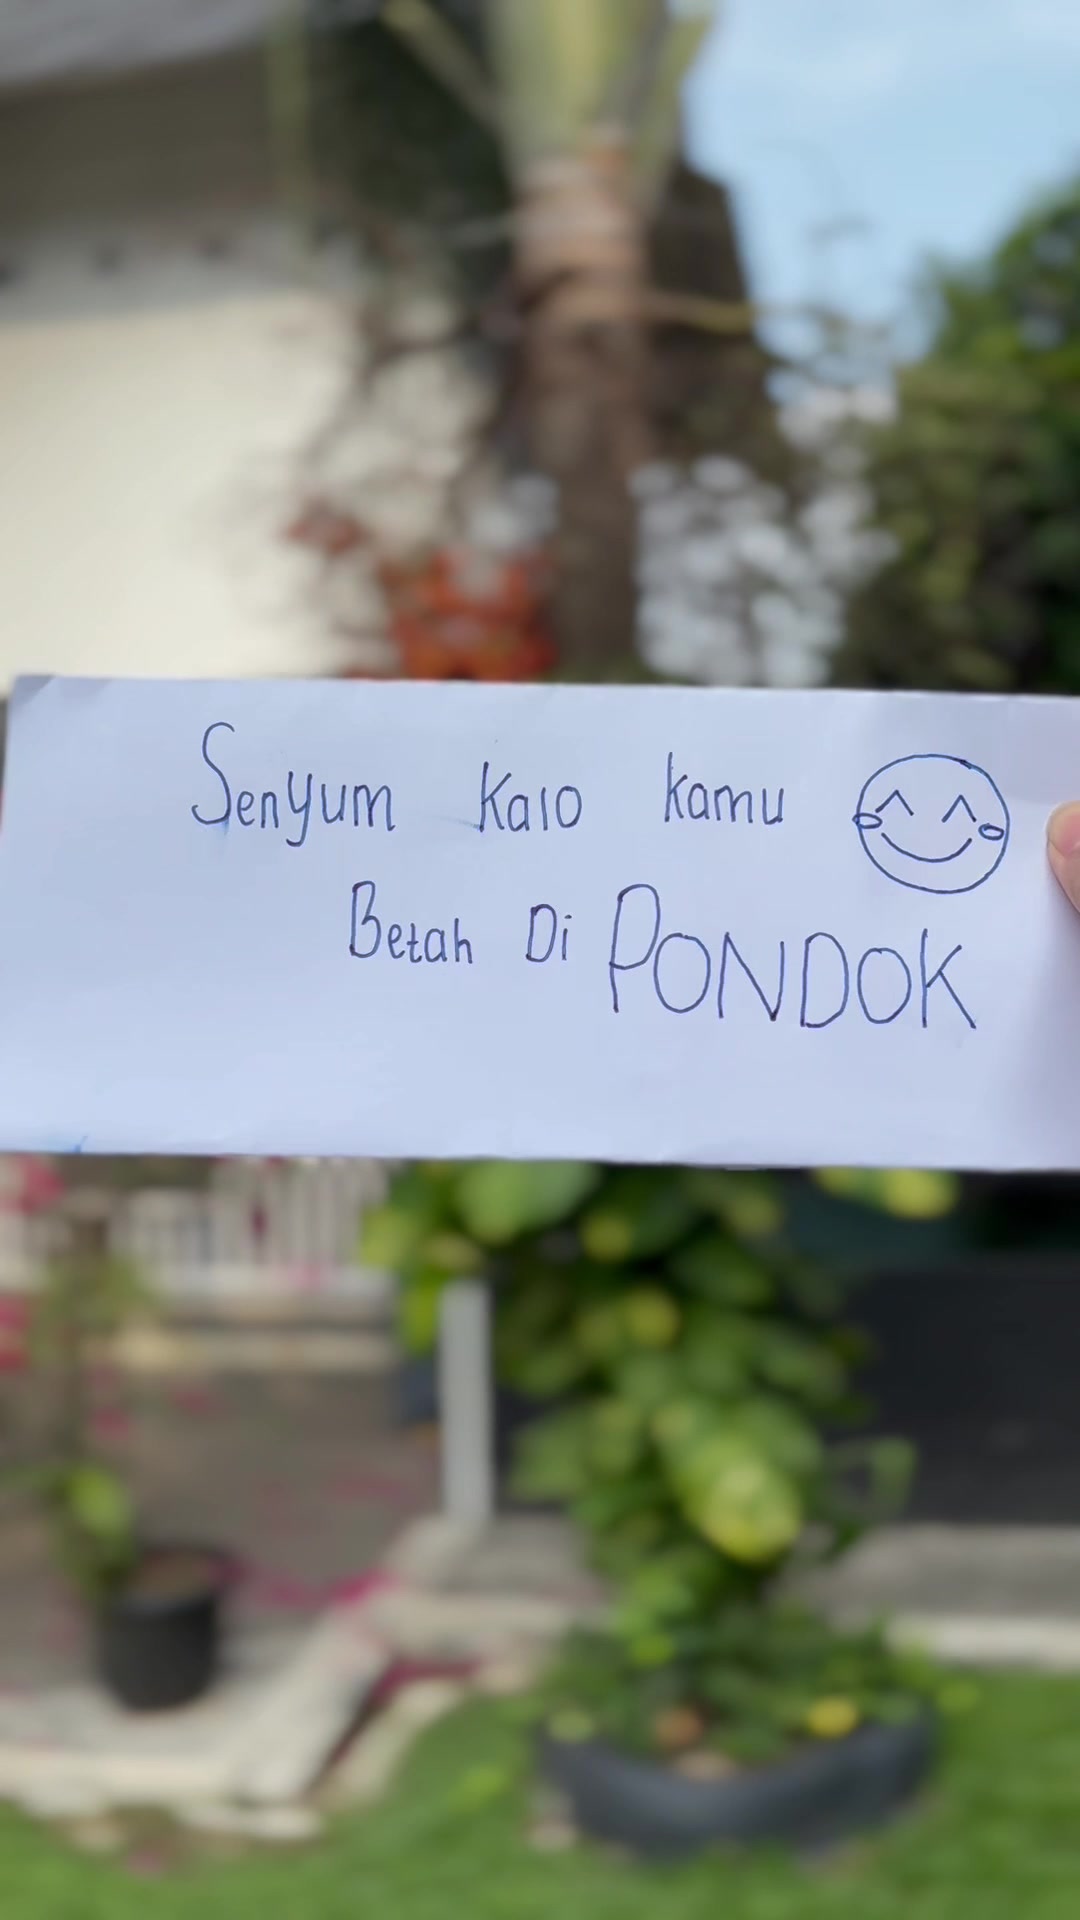 Senyum Kalo kamu
Betah Di PONDOK